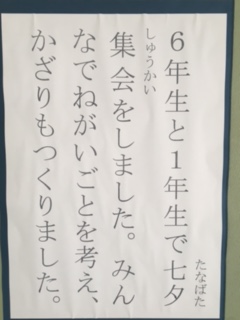 ６年生と１年生で七夕
たなばた
集会をしました。みん
しゅうかい
なでねがいごとを考え、
かざりもつくりました。